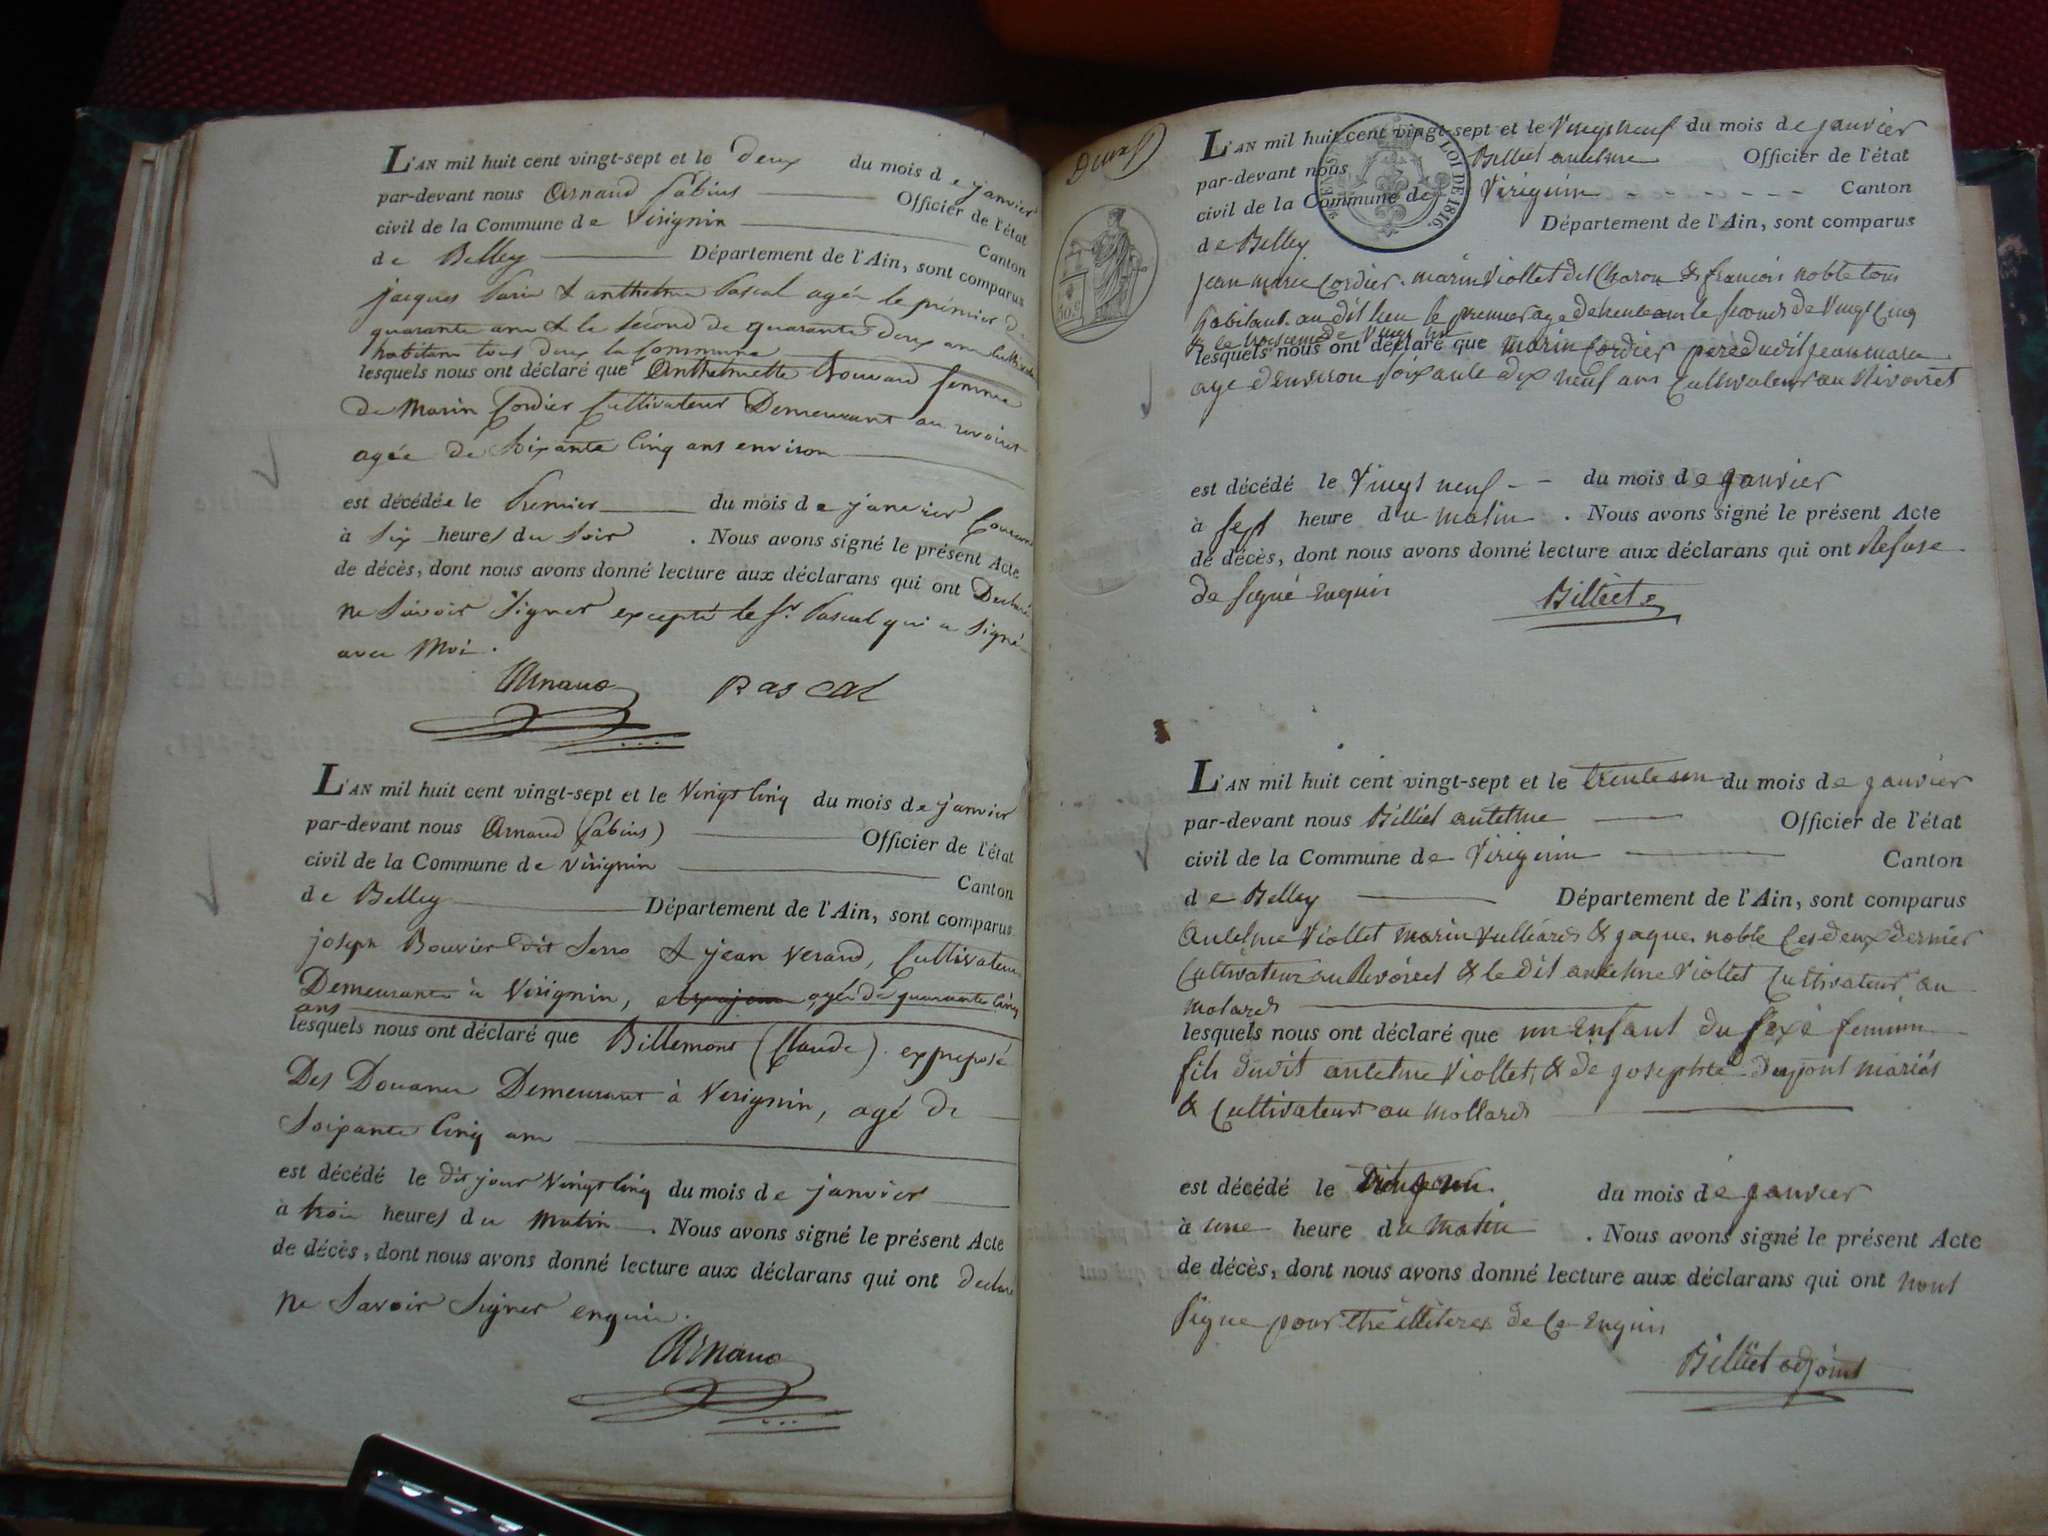 L'AN mil huit cent vingt-sept et le deux du mois de janvier
par-devant nous Arnaud Fabius Officier de l'état
civil de la Commune de Virignin Canton
de Belley Département de l'Ain, sont comparus
jacques & anthelme Pascal agés le premier de
quarante ans & le second de quarante deux ans
habitans tous deux la Commune
lesquels nous ont déclaré que Anthelmette Bouvard femme
de Marin Cordier Cultivateur Demeurant au
agée de Soixante Cinq ans environ
est décédée le Premier du mois de janvier Courant
à Six heures du Soir . Nous avons signé le présent Acte
de décès, dont nous avons donné lecture aux déclarans qui ont Declaré
ne Savoir Signer excepté le Sr. Pascal qui a Signé
avec Moi.
Arnaud Pascal
L'AN mil huit cent vingt-sept et le Vingt Cinq du mois de janvier
par-devant nous Arnaud (Fabius) Officier de l'état
civil de la Commune de Virignin Canton
de Belley Département de l'Ain, sont comparus
joseph Bouvier dit & jean Verand, Cultivateurs
Demeurants à Virignin, agés de quarante Cinq
ans
lesquels nous ont déclaré que Billemont (Claude) ex preposé
Des Douanes Demeurant à Virignin, agé de
Soixante Cinq ans
est décédé le dit jour Vingt Cinq du mois de janvier
à trois heures du Matin . Nous avons signé le présent Acte
de décès, dont nous avons donné lecture aux déclarans qui ont declaré
ne Savoir Signer enquis.
Arnaud
Deux
LOI DE 1816
L'AN mil huit cent vingt-sept et le Vingt neuf du mois de janvier
par-devant nous Billiet antelme Officier de l'état
civil de la Commune de Virignin Canton
de Belley Département de l'Ain, sont comparus
jean marie Cordier. marin Viollet dit Charon & francois noble tous
habitant au dit lieu le premier age de trente ans le second de Vingt Cinq
& le troisieme de Vingt
lesquels nous ont déclaré que marin Cordier pere dudit jean marie
age d'environ soixante dix neuf ans Cultivateur au Rivoiret
est décédé le Vingt neuf du mois de janvier
à sept heure du matin . Nous avons signé le présent Acte
de décès, dont nous avons donné lecture aux déclarans qui ont Refuse
de signé Enquis
Billiet
L'AN mil huit cent vingt-sept et le trente un du mois de janvier
par-devant nous Billiet antelme Officier de l'état
civil de la Commune de Virignin Canton
de Belley Département de l'Ain, sont comparus
antelme Viollet marin Vulliard & jaque noble Ces deux dernier
Cultivateur au Rivoiret & le dit antelme Viollet Cultivateur au
molard
lesquels nous ont déclaré que un Enfant du sexe feminin
fils dudit antelme Viollet, & de josephte Dupont mariés
& Cultivateur au mollard
est décédé le du mois de janvier
à une heure du matin . Nous avons signé le présent Acte
de décès, dont nous avons donné lecture aux déclarans qui ont nont
signe pour de Ce Enquis
Billiet adjoint